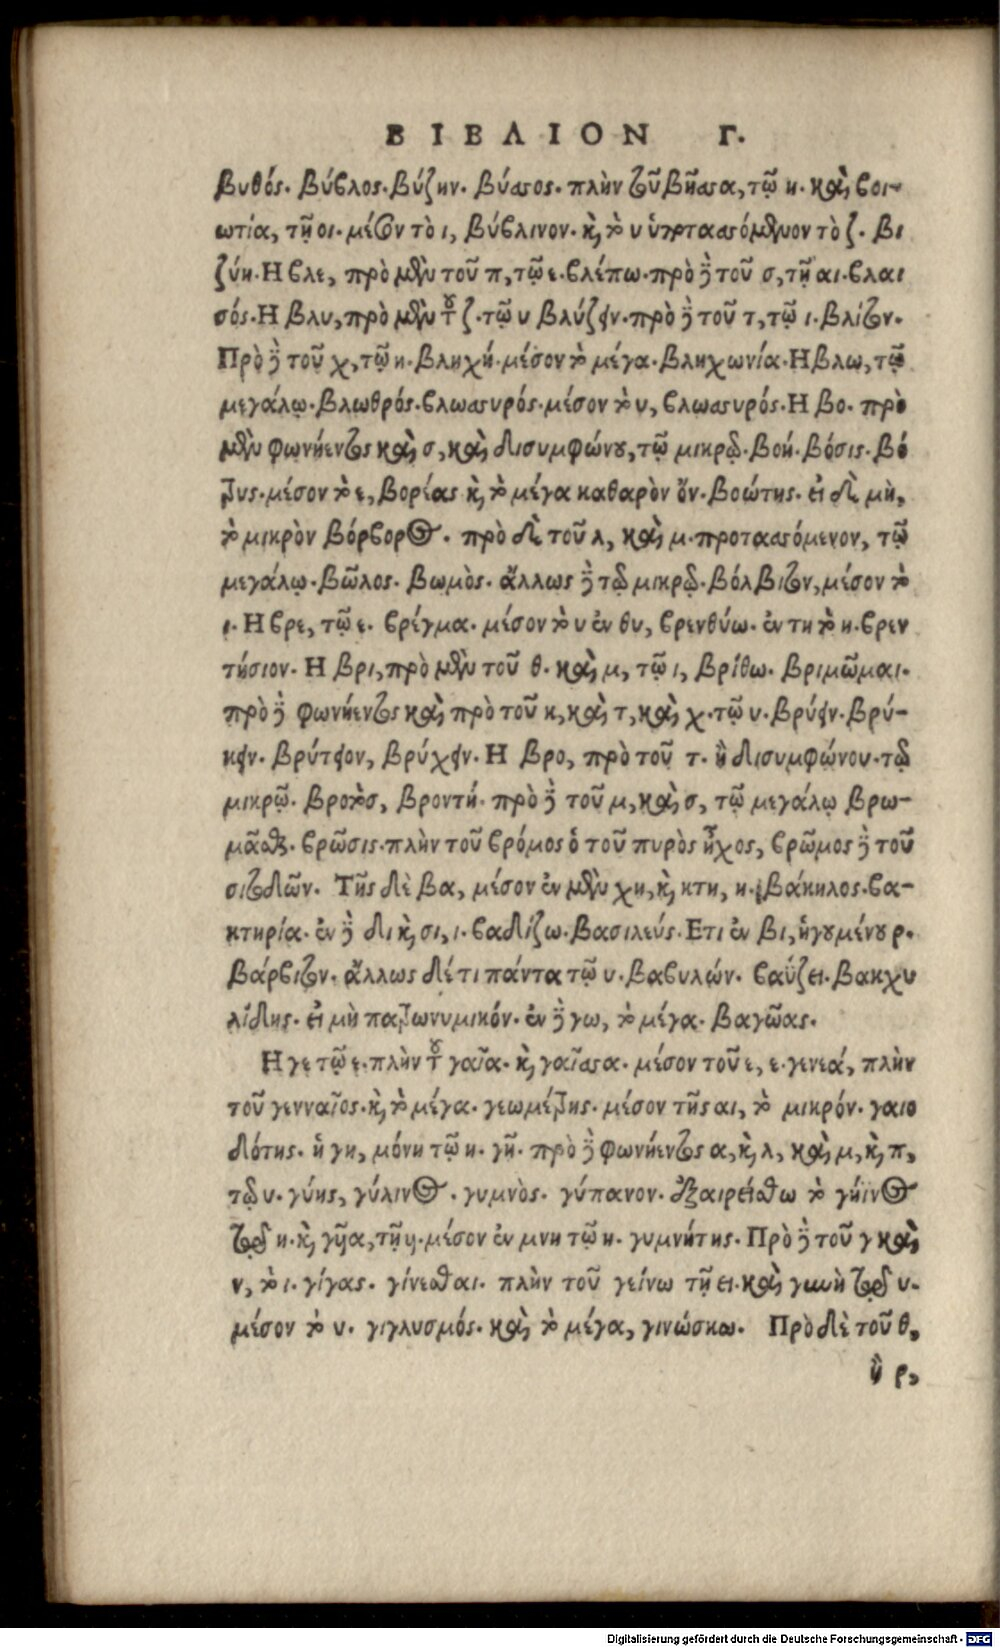 ΒΙΒΛΙΟΝ Γ.
βυθός. βύβλος. βύζην. βύσσος. πλὴν τοῦ βῆσσα, τῷ η. καὶ βοι-
ωτία, τῇ οι. μέσον τὸ ι, βύβλινον. καὶ τὸ υ ὑποτασσόμενον τὸ ζ. βι
ζύη. Η βλε, πρὸ μὲν τοῦ π, τῷ ε. βλέπω. πρὸ δὲ τοῦ σ, τῇ αι. βλαι
σός. Η βλυ, πρὸ μὲν τοῦ ζ. τῷ υ βλύζειν. πρὸ δὲ τοῦ τ, τῷ ι. βλίτον.
Πρὸ δὲ τοῦ χ, τῷ η. βληχή. μέσον τὸ μέγα. βληχωνία. Η βλω, τῷ
μεγάλῳ. βλωθρός. βλωσυρός. μέσον τὸ υ, βλωσυρός. Η βο. πρὸ
μὲν φωνήεντος καὶ σ, καὶ δισυμφώνου, τῷ μικρῷ. βοή. βόσις. βό
τρυς. μέσον τὸ ε, βορέας καὶ τὸ μέγα καθαρὸν ὄν. βοώτης. εἰ δὲ μὴ,
τὸ μικρὸν βόρβορος. πρὸ δὲ τοῦ λ, καὶ μ. προτασσόμενον, τῷ
μεγάλῳ. βῶλος. βωμὸς. ἄλλως δὲ τῷ μικρῷ. βόλβιτον, μέσον τὸ
ι. Η βρε, τῷ ε. βρέγμα. μέσον τὸ υ ἐν θυ, βρενθύω. ἐν τη τὸ η. βρεν
τήσιον. Η βρι, πρὸ μὲν τοῦ θ. καὶ μ, τῷ ι, βρίθω. βριμῶμαι.
πρὸ δὲ φωνήεντος καὶ πρὸ τοῦ κ, καὶ τ, καὶ χ. τῷ υ. βρύειν. βρύ-
κειν. βρύτειον, βρύχειν. Η βρο, πρὸ τοῦ τ. ἢ δισυμφώνου. τῷ
μικρῷ. βροτὸς, βροντή. πρὸ δὲ τοῦ μ, καὶ σ, τῷ μεγάλῳ βρω-
μᾶσθαι. βρῶσις. πλὴν τοῦ βρόμος ὁ τοῦ πυρὸς ἦχος, βρῶμος δὲ τοῦ
σιτοδλῶν. Τῆς δὲ βα, μέσον ἐν μὲν χη, καὶ κτη, η. βάκηλος. βα-
κτηρία. ἐν δὲ δι καὶ σι, ι. βαδίζω. βασιλεύς. Ετι ἐν βι, ἡγουμένου ρ.
βάρβιτον. ἄλλως δέ τι πάντα τῷ υ. βαβυλών. βαΰζει. βακχυ
λίδης. εἰ μὴ πατρωνυμικόν. ἐν δὲ γω, τὸ μέγα. βαγῶας.
Η γε τῷ ε. πλὴν τοῦ γαῖα. καὶ γαῖσσα. μέσον τοῦ ε, ε. γενεά, πλὴν
τοῦ γενναῖος. καὶ τὸ μέγα. γεωμέτρης. μέσον τῆς αι, τὸ μικρόν. γαιο
δότης. ἡ γη, μόνη τῷ η. γῆ. πρὸ δὲ φωνήεντος α, καὶ λ, καὶ μ, καὶ π,
τῷ υ. γύης, γύλινος. γυμνὸς. γύπανον. ἐξαιρείσθω τὸ γήϊνος
τῷ η. καὶ γῇα, τῇ ῃ. μέσον ἐν μνη τῷ η. γυμνήτης. Πρὸ δὲ τοῦ γ καὶ
ν, τὸ ι. γίγας. γίνεσθαι. πλὴν τοῦ γείνω τῇ ει. καὶ γυνὴ τῷ υ.
μέσον τὸ υ. γιγλυσμός. καὶ τὸ μέγα, γινώσκω. Πρὸ δὲ τοῦ θ,
ἢ ρ,
Digitalisierung gefördert durch die Deutsche Forschungsgemeinschaft - DFG